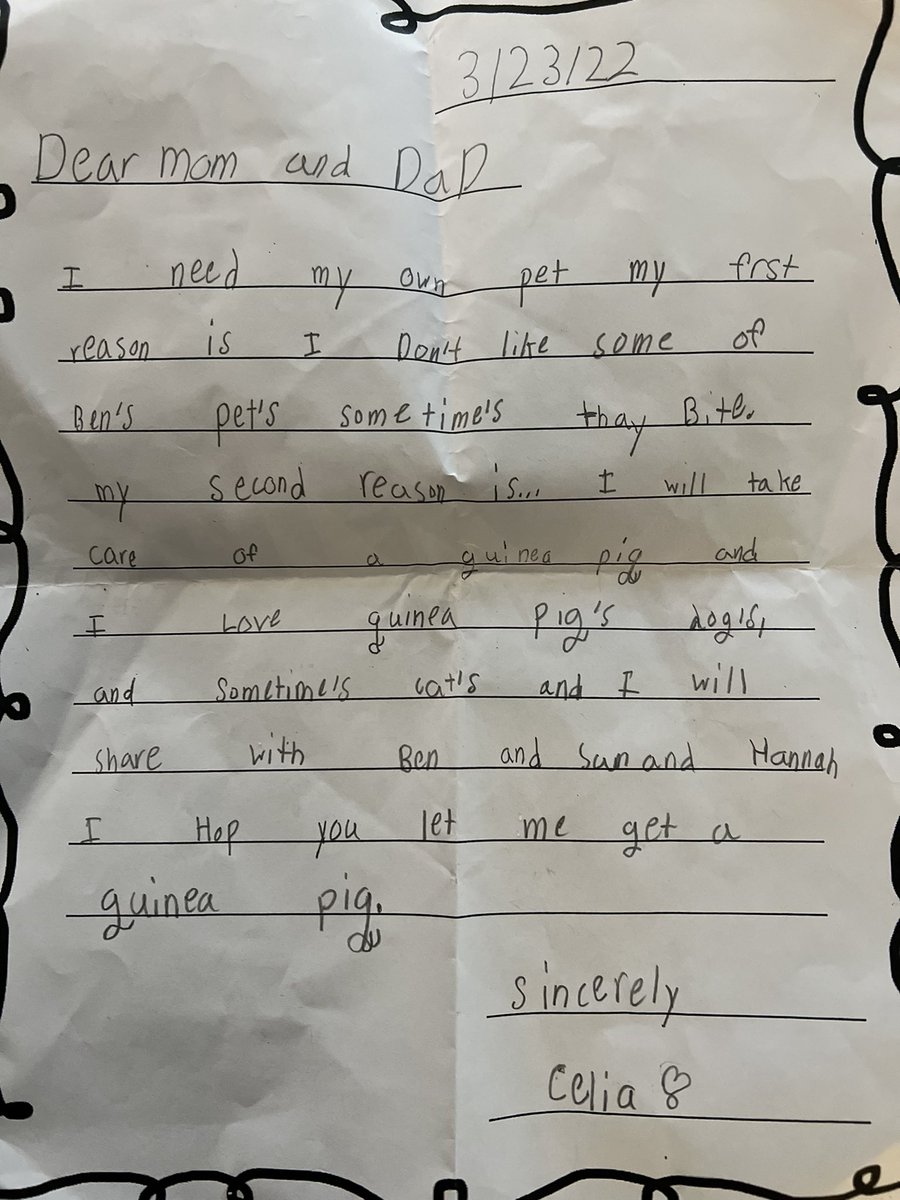 3/23/22
Dear mom and DaD
I need my own pet my frst
reason is I Don't like some of
Ben's pet's sometime's thay Bite.
my second reason is... I will take
care of a guinea pig and
I Love guinea pig's dog's,
and sometime's cat's and I will
share with Ben and Sun and Hannah
I Hop you let me get a
guinea pig.
sincerely
Celia